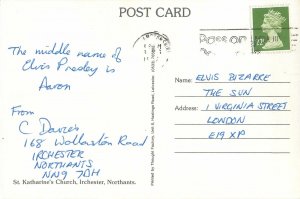 POST CARD
The middle name of
Elvis Presley is
Aaron
From
C Davies
168 Wollaston Road
IRCHESTER
NORTHANTS
NN9 7DH
St. Katharine's Church, Irchester, Northants.
Name: ELVIS BIZARRE
Address: THE SUN
1 VIRGINIA STREET
LONDON
E19XP